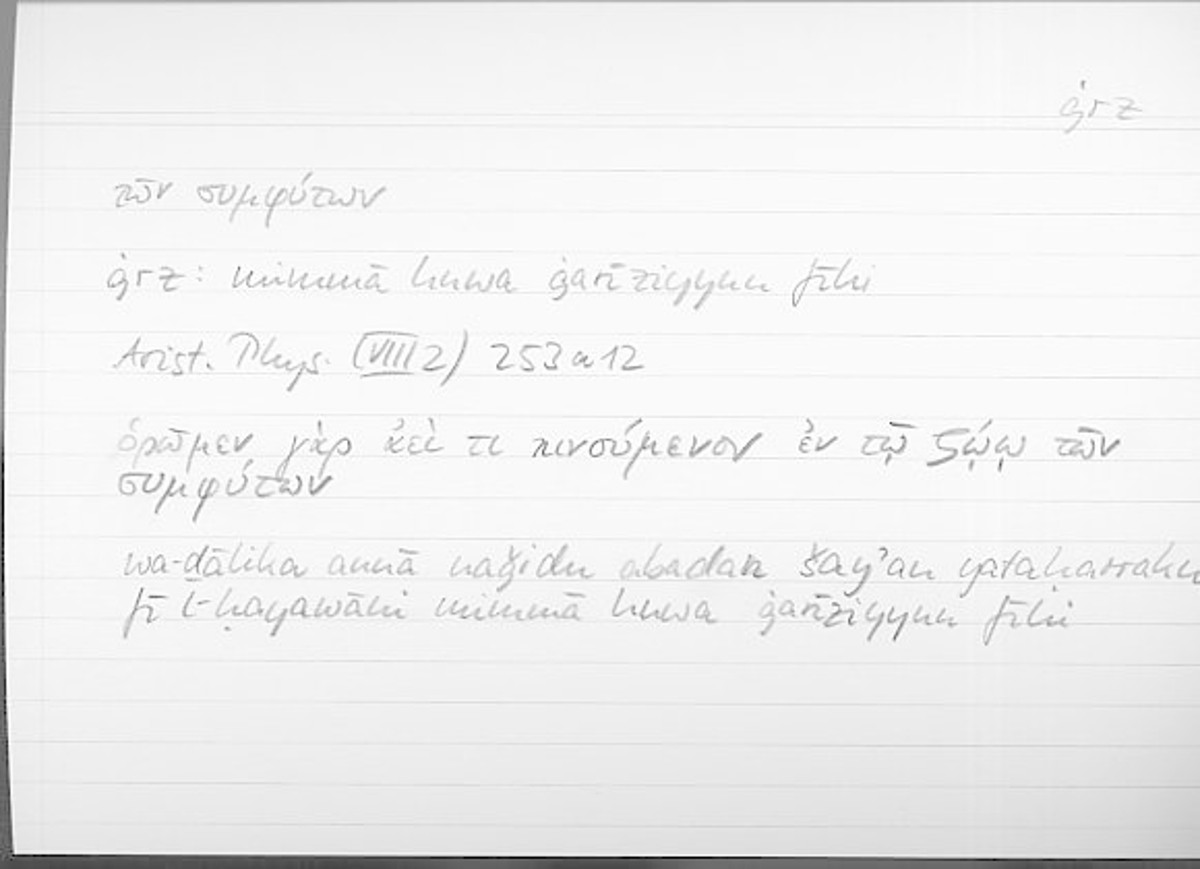 ġrz
τῶν συμφύτων
ġrz: mimmā huwa ġarīziyyun fīhi
Arist. Phys. (VIII 2) 253 a 12
ὁρῶμεν γὰρ ἀεί τι κινούμενον ἐν τῷ ζῴῳ τῶν
συμφύτων
wa-ḏālika annā naǧidu abadan šay’an yataḥarraku
fī l-ḥayawāni mimmā huwa ġarīziyyun fīhi